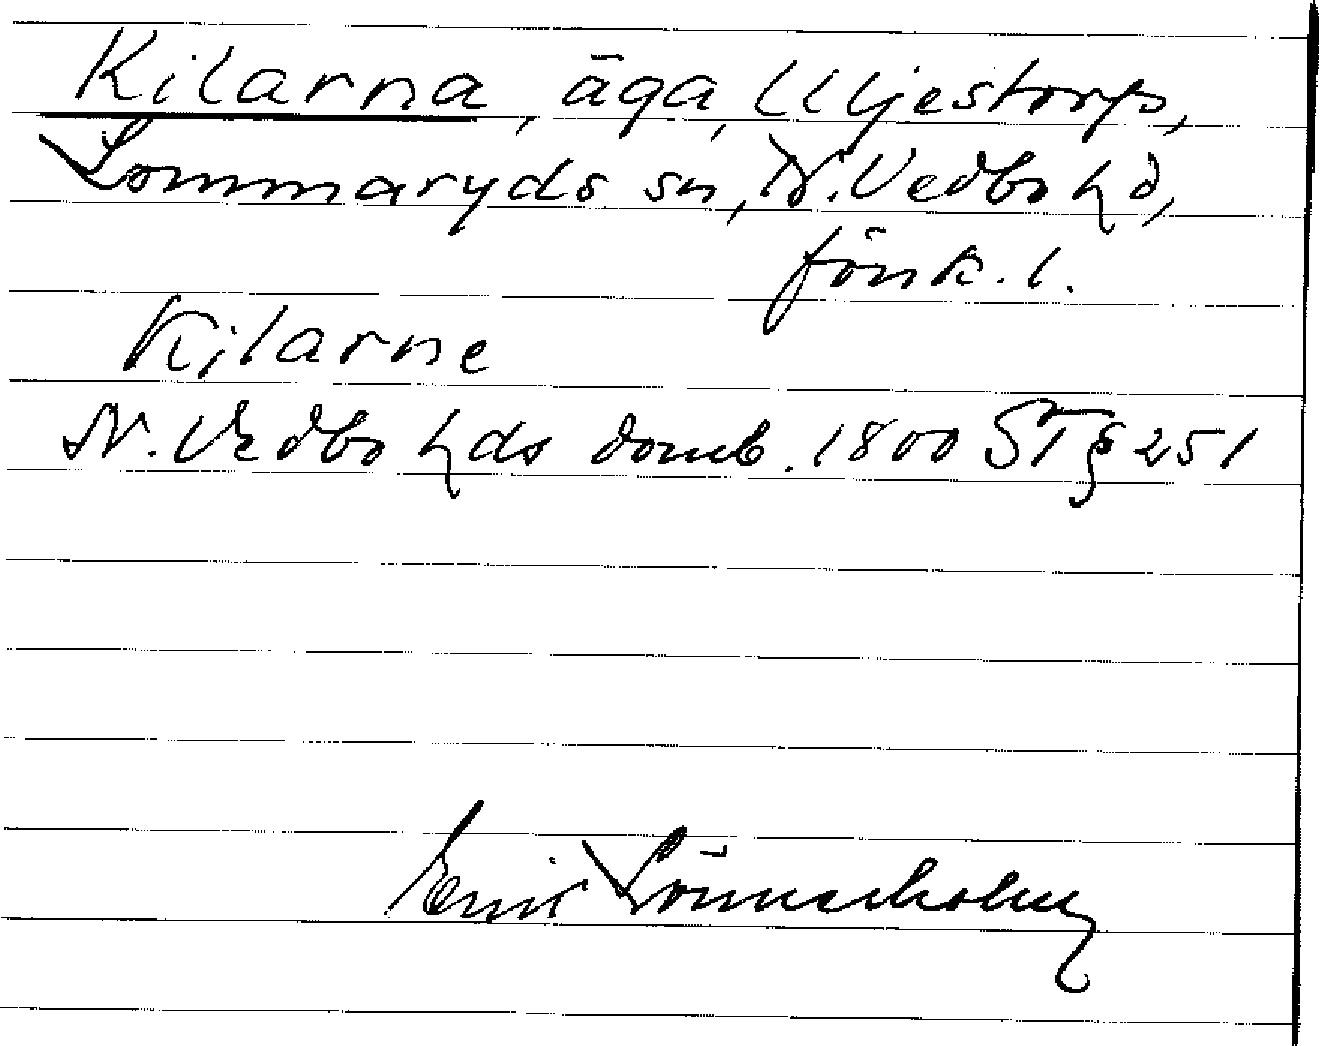 Kilarna, äga, Uljestorp,
Lommaryds sn, N. Vedbo hd,
Jönk. l.
Kilarne
N. Vedbo hds domb. 1800 ST § 251
Emil Lönnerholm